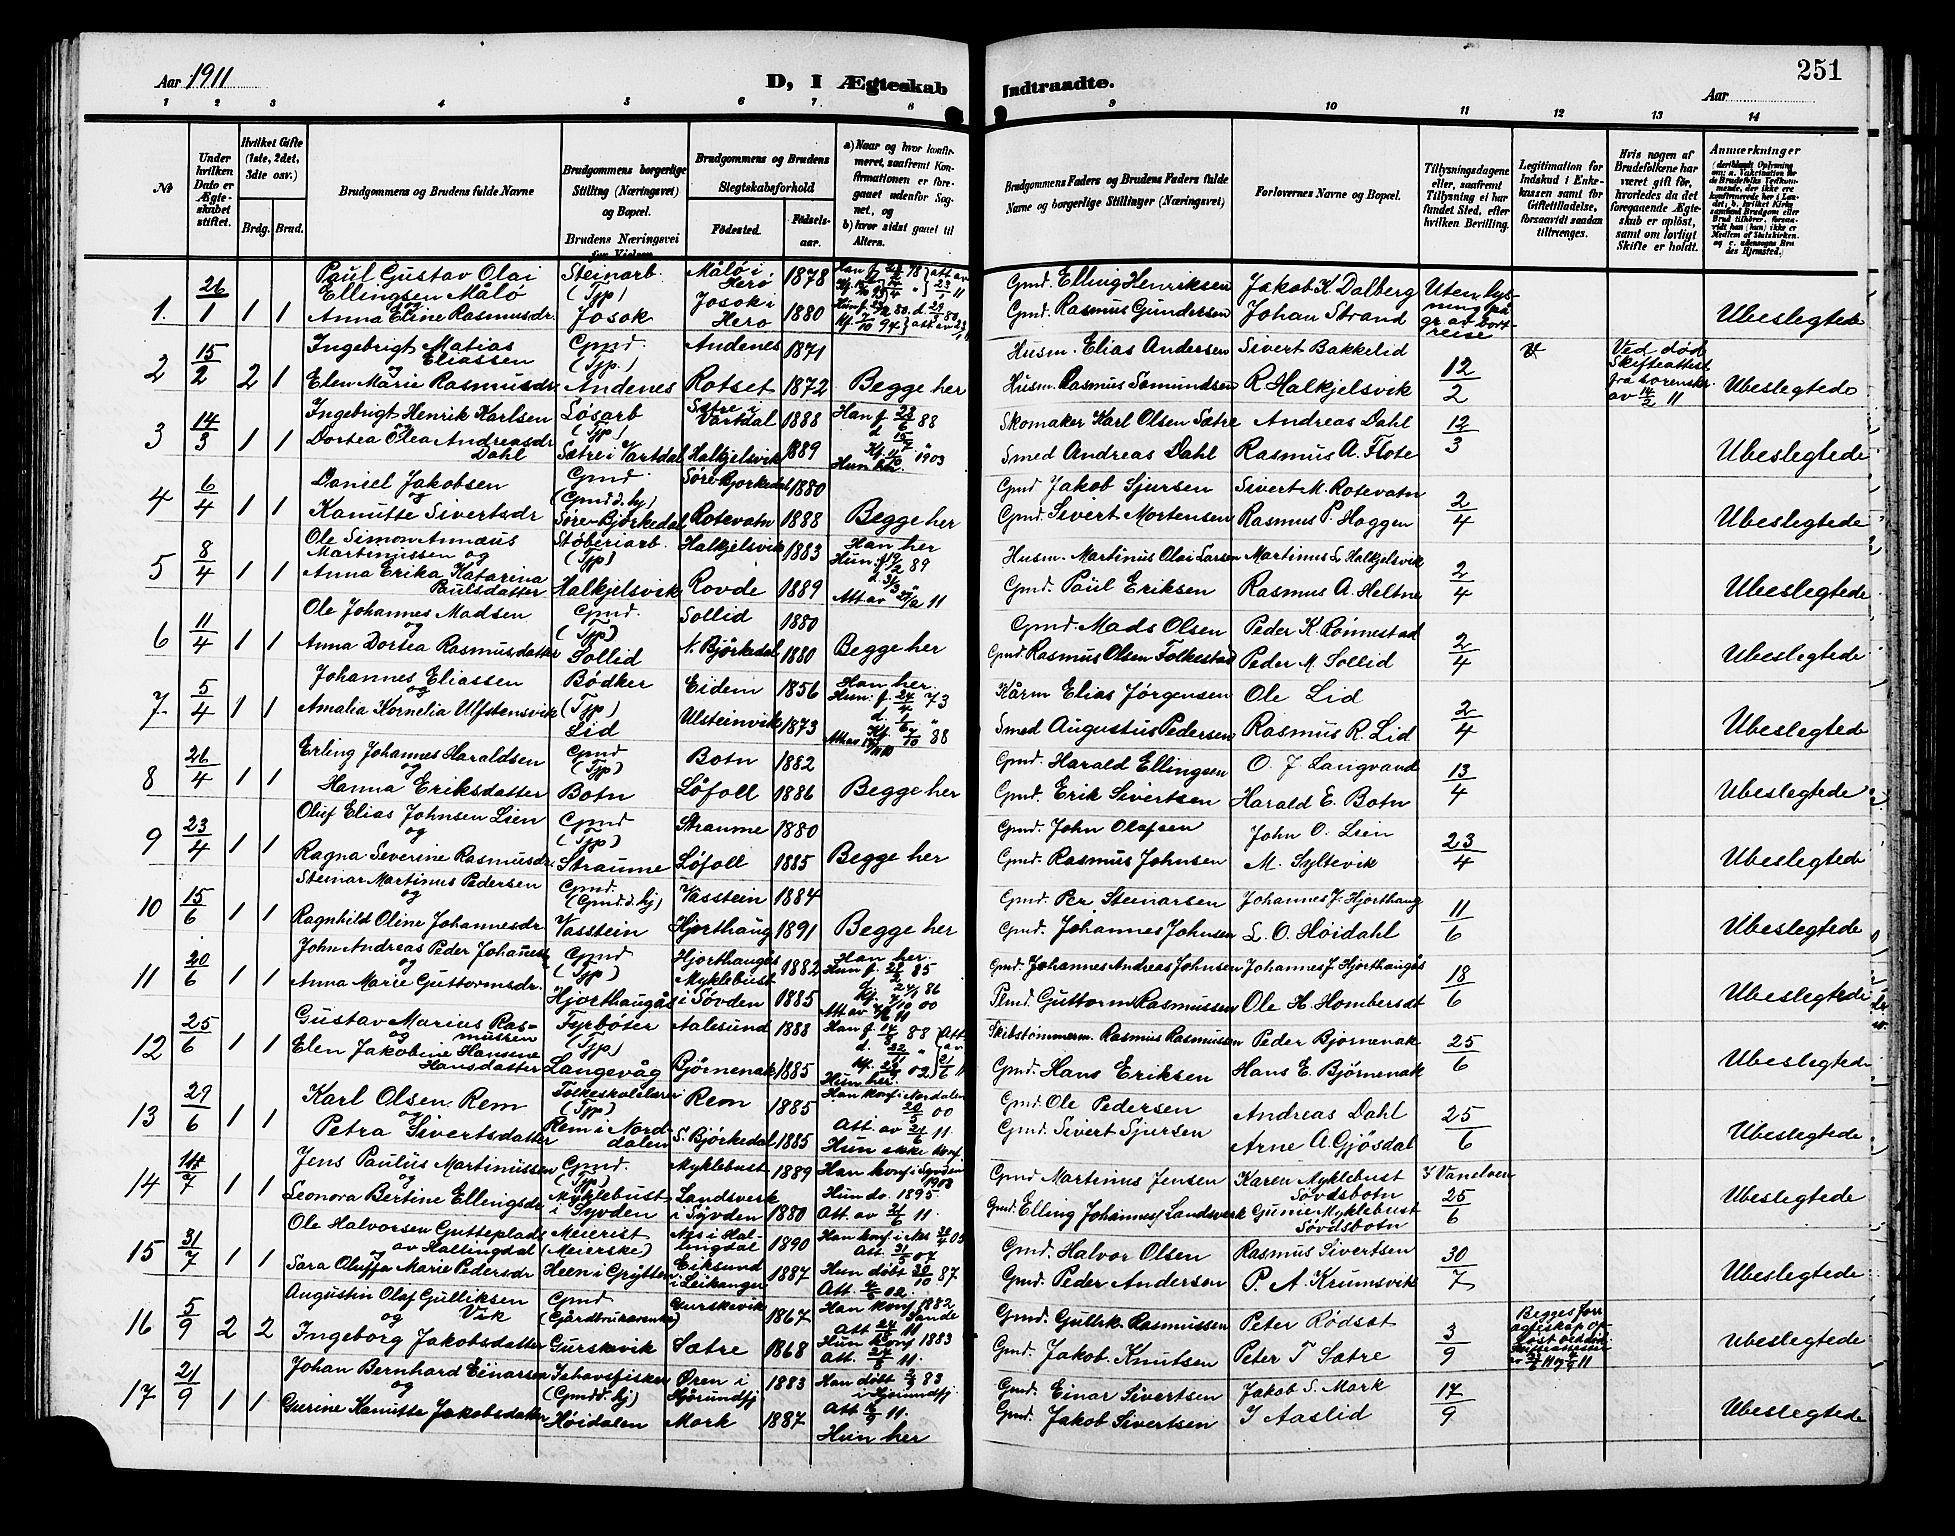 Aar 1911
D, I Ægteskab
Indtraadte.
251
Aar
1 2 3 4 5 6 7 8 9 10 11 12 13 14
№
Under hvilken Dato er Ægteskabet stiftet.
Hvilket Gifte (1ste, 2det, 3die osv.)
Brdg. Brud.
Brudgommens og Brudens fulde Navne
Brudgommens borgerlige Stilling (Næringsvei) og Bopæl.
Brudens Næringsvei før Vielsen
Brudgommens og Brudens Slegtskabsforhold
Fødested.
Fødselsaar.
a) Naar og hvor konfirmeret, saafremt Konfirmationen er foregaaet udenfor Sognet, og
b) hvor sidst gaaet til Alters.
Brudgommens Faders og Brudens Faders fulde Navne og borgerlige Stillinger (Næringsvei)
Forlovernes Navne og Bopæl.
Tillysningsdagene eller, saafremt Tillysning ei har fundet Sted, efter hvilken Bevilling.
Legitimation for Indskud i Enkekassen samt for Giftetilladelse, forsaavidt saadan tiltrænges.
Hvis nogen af Brudefolkene har været gift før, hvorledes da det foregaaende Ægteskab er opløst, samt om lovligt Skifte er holdt.
Anmærkninger
1. 26/1 1 1
Paul Gustav Olai Ellingsen Målö og
Anna Eline Rasmusdr.
Steinarb. (Tjp) Josok
Målö i Herø 1878
Josok i Herø 1880
Gmd. Elling Henriksen
Gmd. Rasmus Gundersen
Jakob K. Dalberg
Johan Strand
Uten lysning på gr. av bortreise
Ubeslegtede
2 15/2 2 1
Ingebrigt Matias Eliassen og
Elen Marie Rasmusdr
Gmd. (Tjp) Andenes
Andenes 1871
Rotset 1872
Begge her
Husm. Elias Andersen
Husm. Rasmus Samundsen
Sivert Bakkelid
R Halkjelsvik
12/2
Ved død Skifteattest fra sorenskr. av 14/2 11
Ubeslegtede
3 14/3 1 1
Ingebrigt Henrik Karlsen og
Dortea Olea Andreasdr Dahl
Losarb (Tjp) Sætre i Vartdal
Sætre i Vartdal 1888
Halkjelsvik 1889
Hun her.
Skomaker Karl Olsen Sætre
Smed Andreas Dahl
Andreas Dahl
Rasmus A. Flote
12/3
Ubeslegtede
4 6/4 1 1
Daniel Jakobsen og
Kanutte Sivertsdr
Gmd (Gmd.d. hj) Søre-Bjørkedal
Søre-Bjørkedal 1880
Rotevatn 1888
Begge her
Gmd Jakob Sjursen
Gmd. Sivert Mortensen
Sivert M. Rotevatn
Rasmus P. Haggen
2/4
Ubeslegtede
5 8/4 1 1
Ole Simon Annæus Martinussen og
Anna Erika Katarina Paulsdatter
Støberiarb. (Tjp) Halkjelsvik
Halkjelsvik 1883
Rovde 1889
Han her
Husm. Martinus Olai Larsen
Gmd. Paul Eriksen
Martinus L. Halkjelsvik
Rasmus A. Heltne
2/4
Ubeslegtede
6 11/4 1 1
Ole Johannes Madsen og
Anna Dortea Rasmusdatter
Gmd. (Tjp) Sollid
Sollid 1880
N. Björkedal 1880
Begge her
Gmd. Mads Olsen
Gmd. Rasmus Olsen Folkestad
Peder K. Rønnestad
Peder M. Sollid
2/4
Ubeslegtede
7 5/4 1 1
Johannes Eliassen og
Amalia Kornelia Ulfstensvik
Bødker (Tjp) Lid
Eidem 1856
Ulsteinvik 1873
Han her.
Kårm Elias Jørgensen
Smed Augustus Pedersen
Ole Lid
Rasmus R. Lid
2/4
Ubeslegtede
8 26/4 1 1
Erling Johannes Haraldsen og
Hanna Eriksdatter
Gmd (Tjp) Botn
Botn 1882
Löfoll 1886
Begge her
Gmd. Harald Ellingsen
Gmd. Erik Sivertsen
O. J. Langvand
Harald E. Botn
13/4
Ubeslegtede
9 23/4 1 1
Oluf Elias Johnsen Lien og
Ragna Severine Rasmusdr.
Gmd (Tjp) Straume
Straume 1880
Löfoll 1885
Begge her
Gmd. John Olafsen
Gmd. Rasmus Johnsen
John O. Lien
M. Syltevik
23/4
Ubeslegtede
10 15/6 1 1
Steinar Martinus Pedersen og
Ragnhild Oline Johannesdr.
Gmd. (Gmd.d. hj) Vasstein
Vasstein 1884
Hjorthaug 1891
Begge her
Gmd. Per Steinarsen
Gmd. Johannes Johnsen
Johannes J. Hjorthaug
L. O. Høidahl
11/6
Ubeslegtede
11 20/6 1 1
John Andreas Peder Johannes. og
Anna Marie Guttormsdr.
Gmd (Tjp) Hjorthaugås
Hjorthaugås 1882
Myklebust i Søvden 1885
Han her.
Gmd. Johannes Andreas Johnsen
Guttorm Rasmussen
Johannes J. Hjorthaugås
Ole H. Hombersat
18/6
Ubeslegtede
12 25/6 1 1
Gustav Marius Rasmussen og
Elen Jakobine Hansine Hansdatter
Fyrbøter (Tjp) Langevåg
Aalesund 1888
Bjørnenak 1885
Hun her.
Skibstømmerm. Rasmus Rasmussen
Gmd. Hans Eriksen
Peder Bjørnenak
Hans E. Bjørnenak
25/6
Ubeslegtede
13 29/6 1 1
Karl Olsen Rem og
Petra Sivertsdatter
Folkeskolelærer (Tjp) Rem i Norddalen
Rem 1885
S. Bjørkedal 1885
Han konf. i Nordalen 20/5 00
Att. av 21/6 11.
Hun ikke konf.
Gmd Ole Pedersen
Gmd. Sivert Sjursen
Andreas Dahl
Arne A. Gjøsdal
25/6
Ubeslegtede
14 14/7 1 1
Jens Paulus Martinussen og
Leonora Bertine Ellingsdr
Gmd. (Tjp) Myklebust i Syvden
Myklebust 1889
Landsverk i Syvden 1880
Han konf. i Syvden 1903
Hun do. 1895.
Att. av 21/6 11.
Gmd Martinus Jensen
Gmd. Elling Johannes Landsverk
Karen Myklebust Søvdsbotn
Gunne Myklebust Søvdsbotn
I Vanelven 25/6
Ubeslegtede
15 31/7 1 1
Ole Halvorsen Gutteplads av Hallingdal og
Sara Oluffa Marie Pedersdr
Meierist (Meierske) Heen i Grytten
Næs i Hallingdal 1890
Eiksund i Leikanger 1887
Hun døbt 30/10 87
Gmd. Halvor Olsen
Gmd. Peder Andersen
Rasmus Sivertsen
P. A. Krumsvik
30/7
Ubeslegtede
16 5/9 2 2
Augustin Olaf Gulliksen Vik og
Ingeborg Jakobsdatter
Gmd (Gårdbrukerenke) Gurskevik
Gurskevik 1867
Sætre 1868
Han konf. 1882 Sande
Hun konf 1883
Gmd. Gullik Rasmussen
Gmd. Jakob Knutsen
Peter Rødsæt
Peter T Sætre
3/9
Ubeslegtede
17 21/9 1 1
Johan Bernhard Einarsen og
Gurine Kanutte Jakobsdatter
Ishavsfisker (Gmdd. hj) Høidalen
Øren i Hjørundfj 1883
Mork 1887
Hun her
Gmd. Einar Sivertsen
Gmd. Jakob Sivertsen
Jakob S. Mork
J Aaslid
17/9
Ubeslegtede